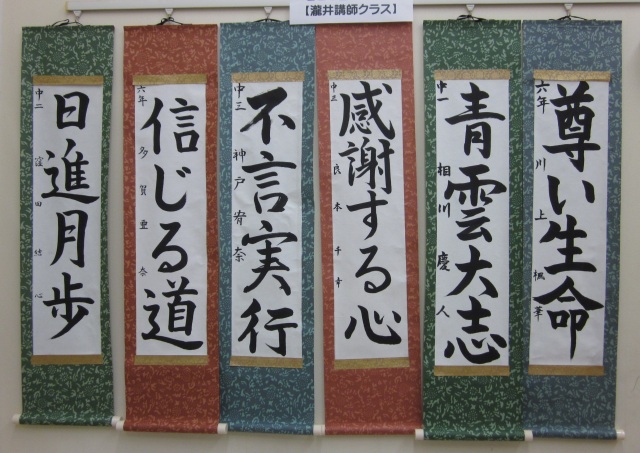 【瀧井講師クラス】
尊い生命
六年 川上楓華
青雲大志
中一 相川慶人
感謝する心
良本千
不言実行
中三 神戸宥奈
信じる道
六年 多賀亜奈
日進月歩
中二 窪田結心